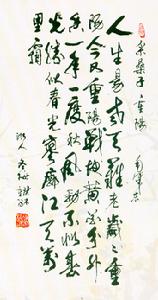 采桑子 重陽
人生易老天難老歲歲重
陽今又重陽戰地黄花分外
香一年一度秋風勁不似春
光勝似春光寥廓江天萬
里霜